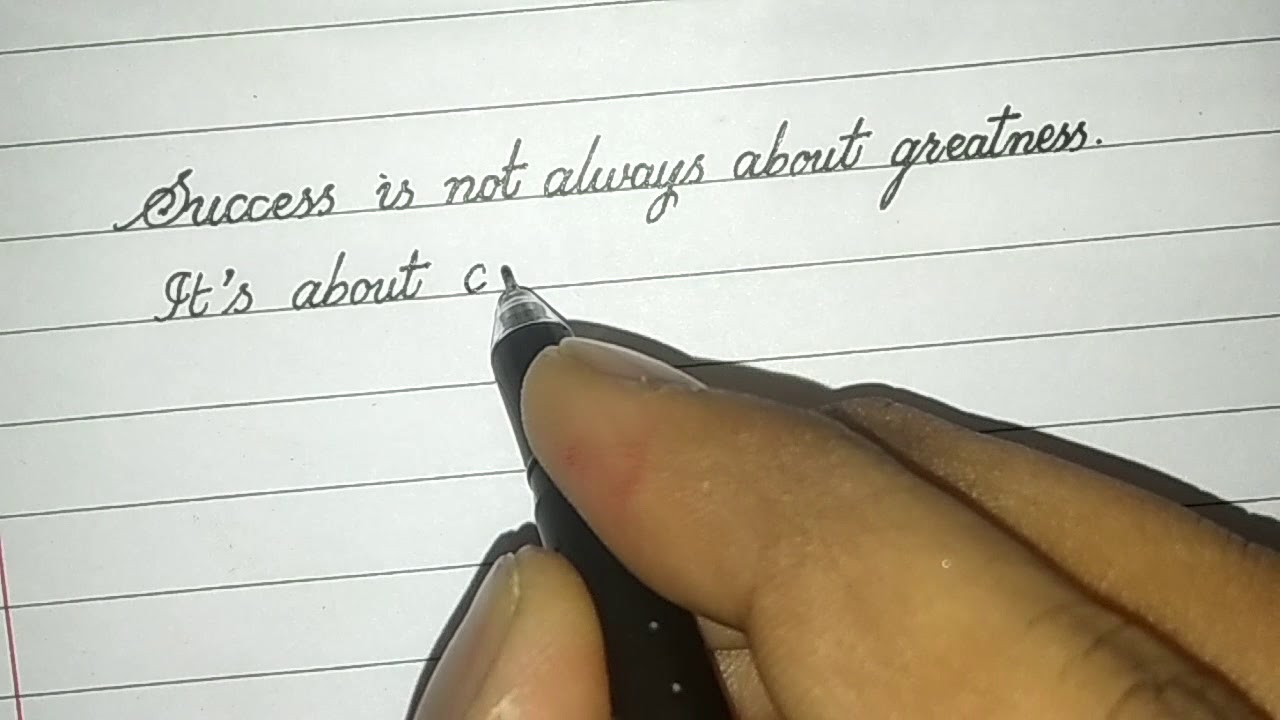 Success is not always about greatness.
It's about c